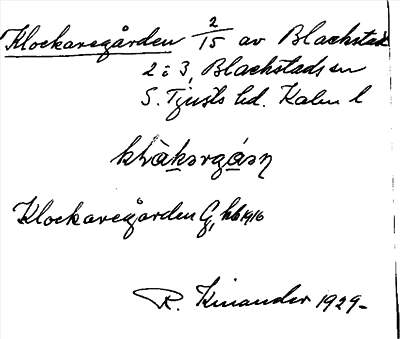 Klockaregården 2/15 av Blackstad
2:3, Blackstads sn
S. Tjusts hd. Kalm l
Klockaregården G, kb 1916
R. Kinander 1929-